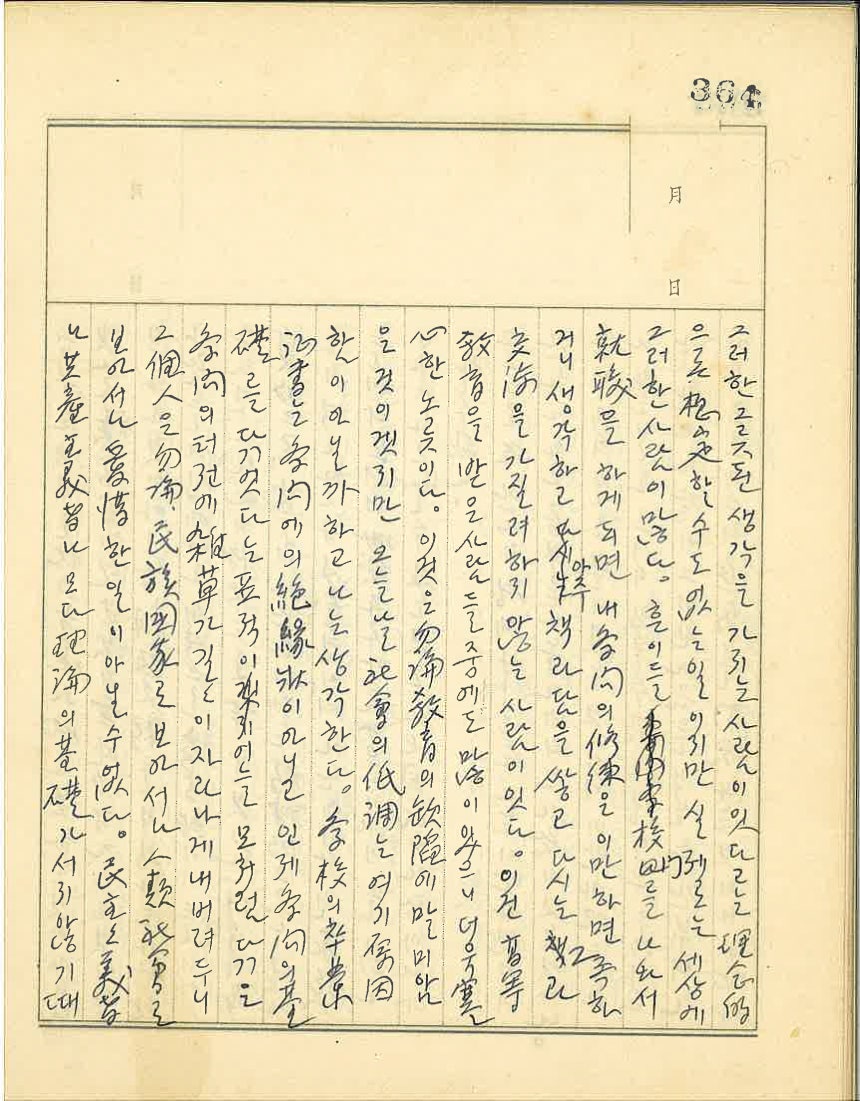 364
月
日
그러한 그릇된 생각을 가지는 사람이 잇다고는 理念的
으로 想定할 수도 없는 일이지만 실제로는 세상에
그러한 사람이 많다. 흔이들 校門를 나와서
就職을 하게 되면 내 學問의 修練은 이만하면 足하
거니 생각하고 아주 책과 담을 쌓고 다시는 책과
交涉을 가질려 하지 않는 사람이 잇다. 이건 高等
敎育을 받은 사람들 중에도 많이 있으니 더욱 寒
心한 노릇이다. 이것은 勿論 敎育의 缺陷에 말미암
을 것이겟지만 오늘날 社會의 低調는 여기 原因
함이 아닐까 하고 나는 생각한다. 學校의 卒業
證書는 學問에의 絶緣狀이 아닐 인제 學問의 基
礎를 다것다는 표적이 언늘 모처럼 다근
學問의 터전에 雜草가 길길이 자라나게 내버려 두니
그 個人은 勿論, 民族國家로 보아서나 人類社會로
보아서나 愛惜한 일이 아닐 수 없다. 民主主義者
나 共産主義者나 모다 理論의 基礎가 서지 않기 때